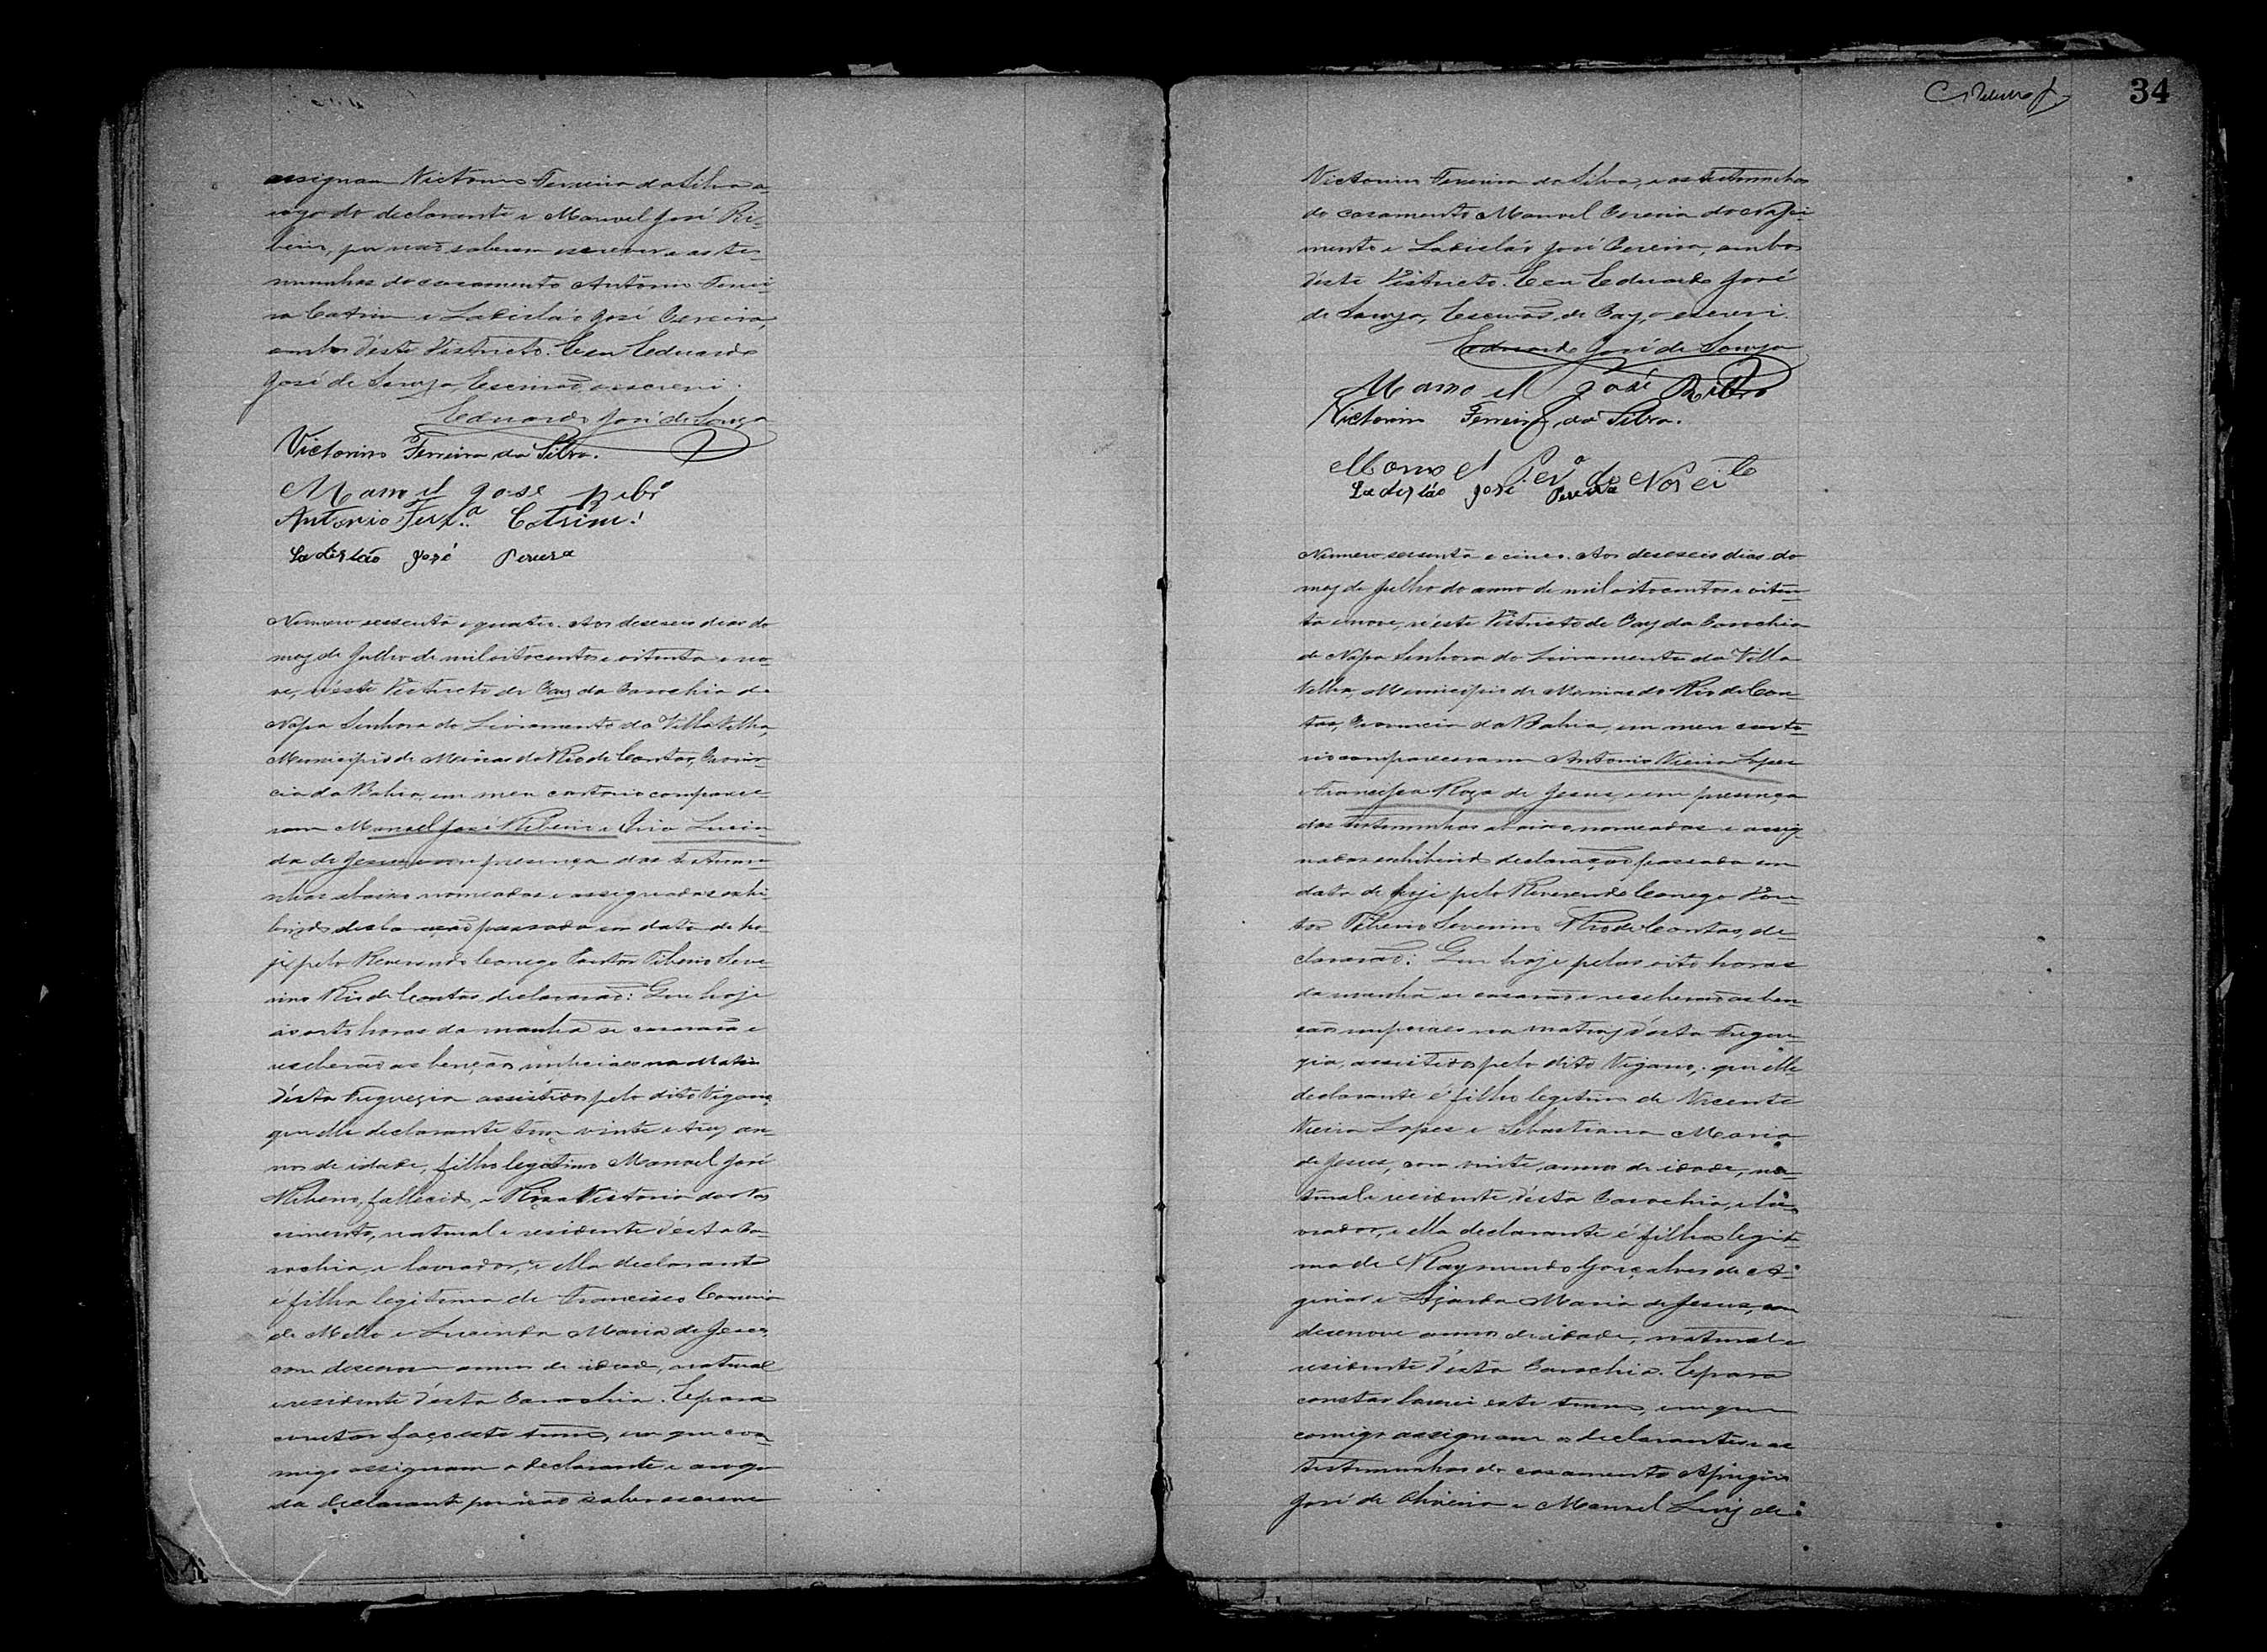 assignam Victorino Ferreira da Silva a
rogo do declarante e Manoel José Ri-
beiro, por não saberem escrever e as tes-
temunhas do casamento Antonio Ferrei-
ra Catrim e Ladislào José Pereira,
ambos d'este Districto. E eu Eduardo
José de Souza, Escrivão, o escrevi.
Eduardo José de Souza
Victorino Ferreira da Silva.
Manoel José Ribrº
Antonio Ferrª Catrim!
Ladislão José Pereira
Numero sessenta e quatro. Aos deseseis dias do
mez de Julho de mil oitocentos e oitenta e no-
ve, n'este Districto de Paz da Parochia de
Nossa Senhora do Livramento da Villa Velha,
Municipio de Minas do Rio de Contas, Provin-
cia da Bahia, em meu cartorio comparece-
ram Manoel José Ribeiro e Lucin-
da de Jesus, e em presença das testemu-
nhas abaixo nomeadas e assignadas exhi-
bindo declaração passada em data de ho-
je pelo Reverendo Conego Doutor Tiberio Seve-
rino Rio de Contas, declararão: Que hoje
as oito horas da manhã se casarão e
receberão as benções nupciaes na Matriz
d'esta Freguezia assistidos pelo dito Vigario,
que elle declarante tem vinte e trez an-
nos de idade, filho legitimo Manoel José
Ribeiro, fallecido, e Roza Victoria do Nas-
cimento, natural e residente d'esta Pa-
rochia, e lavrador, e ella declarante
é filha legitima de Francisco Correia
de Mello e Lucinda Maria de Jesus,
com desenove annos de idade, natural
e residente d'esta Parochia. E para
constar faço este termo, em que com-
migo assignam o declarante e a rogo
da declarante por não saber escrever
34
Victorino Ferreira da Silva, e as testemunhas
do casamento Manoel Pereira do Nasci-
mento e Ladislào José Pereira, ambos
d'este Districto. E eu Eduardo José
de Souza, Escrivão de Paz, o escrevi.
Eduardo José de Souza
Manoel José Ribro
Victorino Ferreira da Silva.
Manoel Perª do Nascito
Ladislão José Pereira
Numero sessenta e cinco. Aos deseseis dias do
mez de Julho do anno de mil oitocentos e oiten-
ta e nove, n'este Districto de Paz da Parochia
de Nossa Senhora do Livramento da Villa
Velha, Municipio de Minas do Rio de Con-
tas, Provincia da Bahia, em meu carto-
rio compareceram Antonio Vieira Lopes
e Francisca Roza de Jesus, e em presença
das testemunhas abaixo nomeadas e assig-
nadas exhibindo declaração passada em
data de hoje pelo Reverendo Conego Dou-
tor Tiberio Severino Rio de Contas, de-
clararão: Que hoje pelas oito horas
da manhã se casarão e receberão as ben-
çãos nupciaes na matriz d'esta Fregue-
zia, assistidos pelo dito Vigario, que elle
declarante é filho legitimo de Vicente
Vieira Lopes e Sebastiana Maria
de Jesus, com vinte annos de idade, na-
tural e residente d'esta Parochia, e la-
vrador, e ella declarante é filha legiti-
ma de Raymundo Gonçalves de A-
guiar e Maria de Jesus, com
desenove annos de idade, natural e
residente d'esta Parochia. E para
constar lavrei este termo, em que
comigo assignam os declarantes e as
testemunhas do casamento Apingio
José de Oliveira e Manoel Luiz de